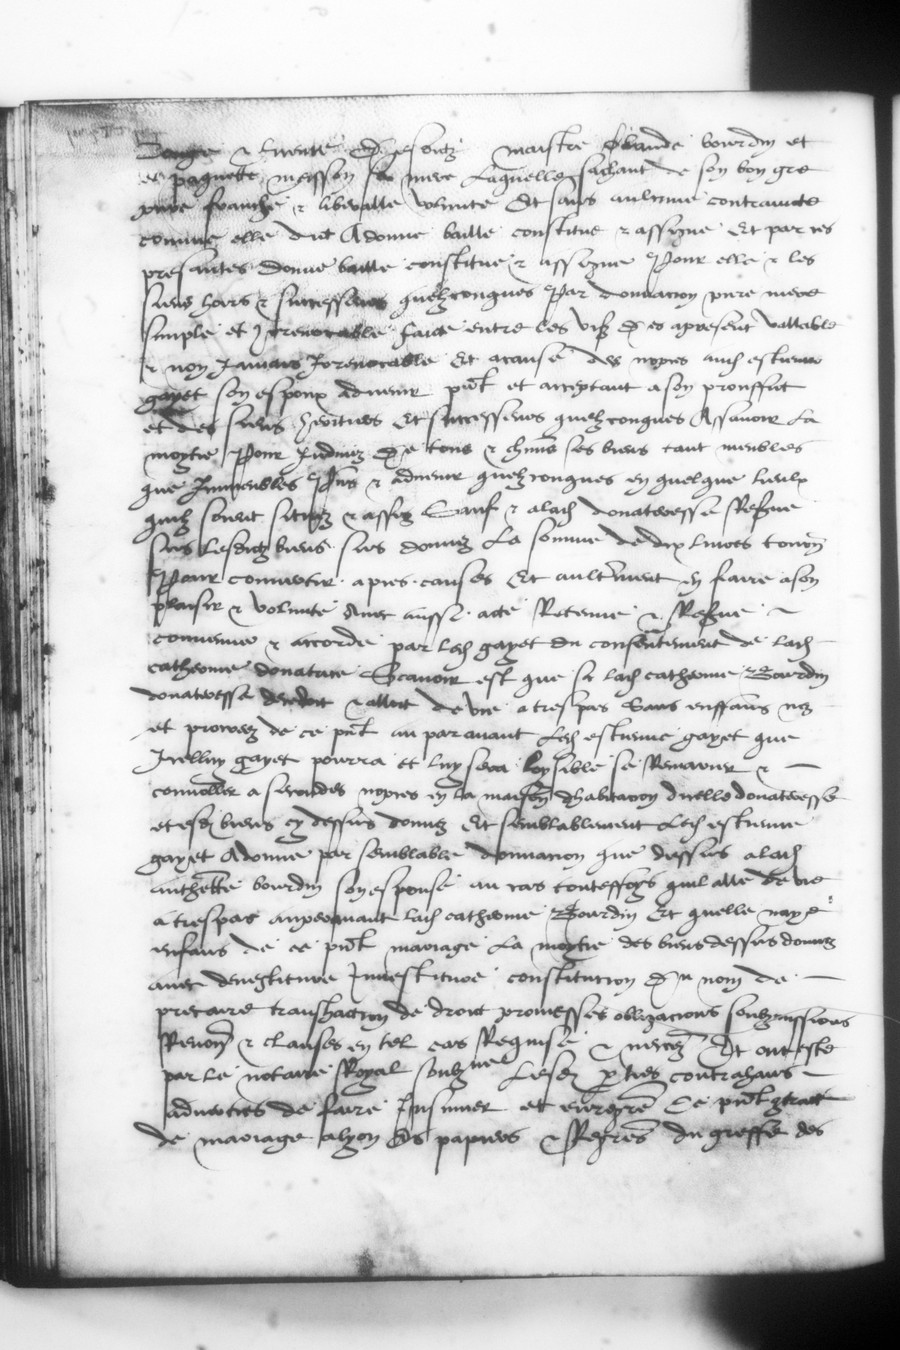 maistre Claude bourdin et
de paquette meisson sa mere Laquelle sachant de son bon gre
pure franche et liberalle volunte Et sans aulcune contraincte
comme elle dit A donne baille constitue et assigne Et par ces
presantes donne baille constitue et assigne Pour elle et les
siens hoirs et successeurs quelzconques Par donnacion pure mere
simple et Irrevocable faicte entre les vifz a present vallable
et non Jamais Irrevocable Et a cause des nopces aud estienne
gayet son espoux advenir pnt et acceptant a son prouffit
et des siens heritiers Et successeurs quelzconques Assavoir La
moytie Pour Indivis De tous et chms ses biens tant meubles
que Immeubles pns et advenir quelzconques en quelque lieulx
quilz soient situez et assis Sauf et a lad donateresse Reserve
sus lesditz biens sus donnez La somme de dix livres tourn
Pour convertir a pies causes Et aultrement en faire a son
plaisir et volunte Avec aussi acte Retenue et Reserve
convenue et accorde par led gayet du consentement de lad
catherine donatrice Scavoir est que si lad catherine Bourdin
donateresse decedoit et alloit de vie a trespas sans enffans nez
et procreez de ce pnt au paravant led estienne gayet que
Icelluy gayet pourra et luy sera loysible se Remarier et
convoller a secondes nopces en la maison dhabitacion dicelle donateresse
et esd biens cy dessus donnez Et semblablement Led estienne
gayet A donne par semblable donnacion que dessus a lad
catherine bourdin son espouse au cas touteffoys quil alle de vie
a trespas auparavant lad catherine Bourdin Et quelle naye
enfans de ce pnt mariage La moytie des biens dessus donnez
avec devestiture Investiture constitucion Du nom de
precaire translaction de droit promesses obligacions soubzmissions
Renon et clauses en tel cas Requise et necess Et ont este
par le notaire Royal soubzne Lesd parties contrahans
adverties de faire Insinuer et enregre Ce pnt gtract
de mariage alyon es papiers et Regres du greffe des